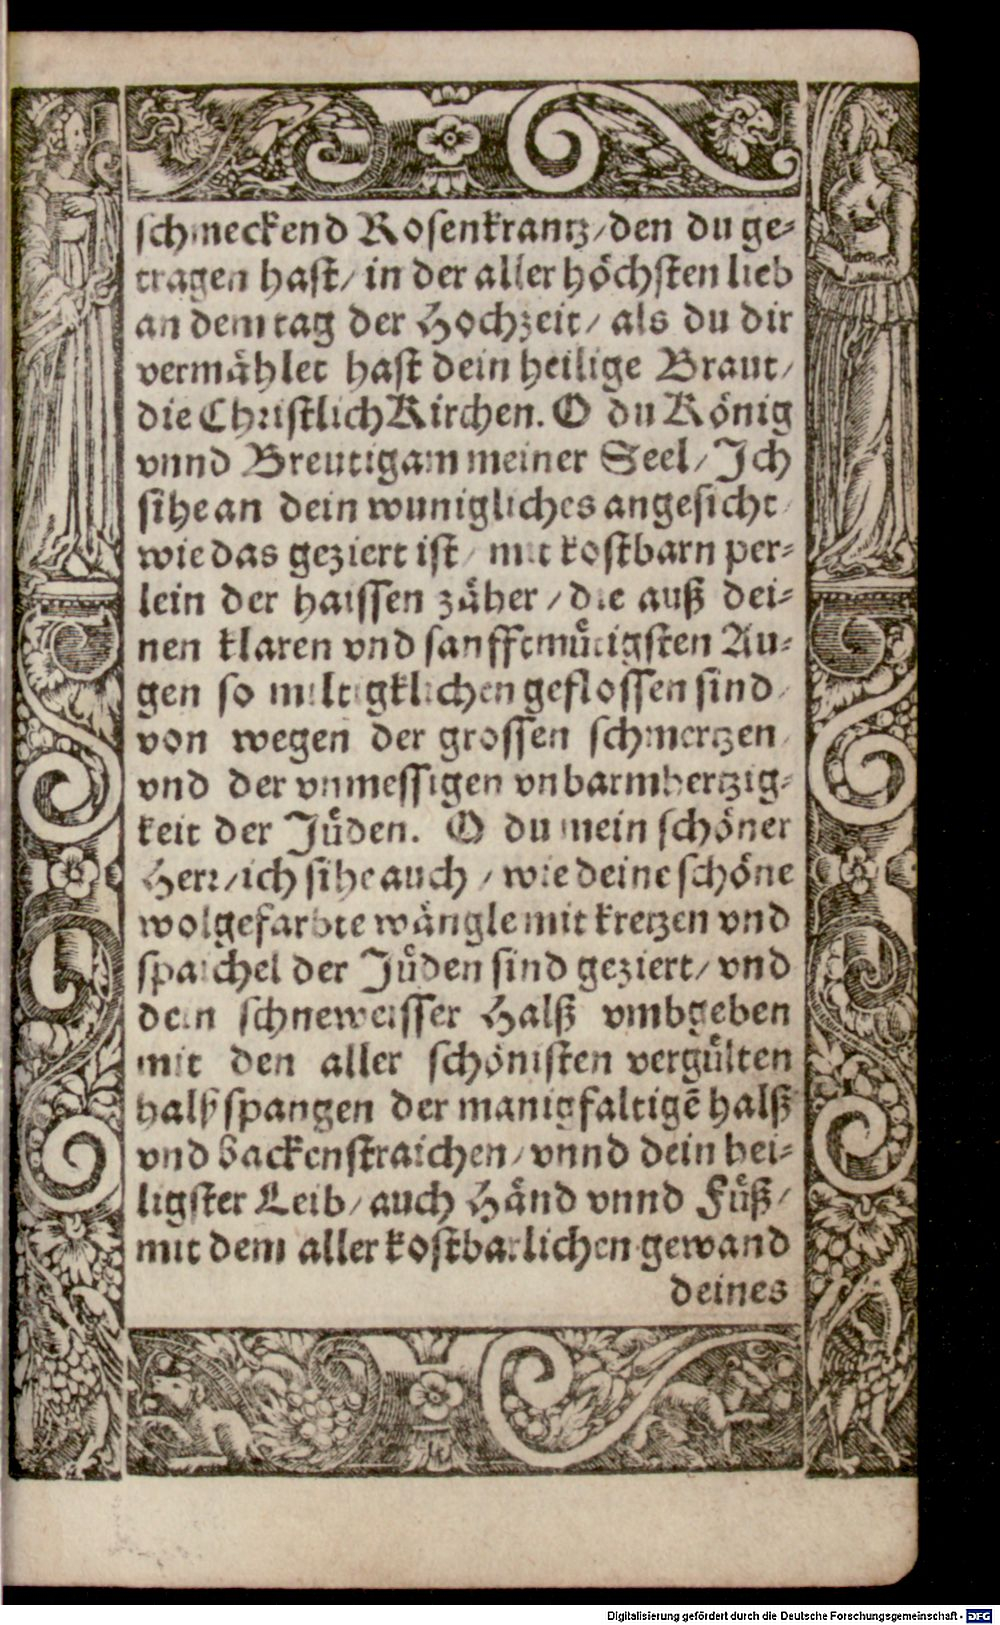 schmeckend Rosenkrantz/den du ge⸗
tragen hast/ in der aller höchsten lieb
an dem tag der Hochzeit/ als du dir
vermählet hast dein heilige Braut/
die Christlich Kirchen. O du König
vnnd Breutigam meiner Seel/ Ich
sihe an dein wunigliches angesicht/
wie das geziert ist/ mit kostbarn per⸗
lein der haissen zäher/ die auß dei⸗
nen klaren vnd sanfftmuͤtigsten Au⸗
gen so miltigklichen geflossen sind/
von wegen der grossen schmertzen/
vnd der vnmessigen vnbarmhertzig⸗
keit der Juͤden. O du mein schöner
Herr/ich sihe auch/ wie deine schöne
wolgefarbte wängle mit kretzen vnd
spaichel der Juͤden sind geziert/ vnd
dein schneweisser Halß vmbgeben
mit den aller schönisten verguͤlten
halßspangen der manigfaltigē halß
vnd backenstraichen/ vnnd dein hei⸗
ligster Leib/ auch Händ vnnd Fuͤß/
mit dem aller kostbarlichen gewand
deines
Digitalisierung gefördert durch die Deutsche Forschungsgemeinschaft - DFG